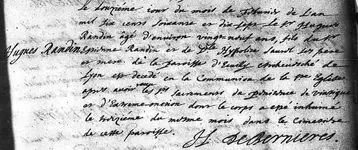 Le douzieme jour du mois de febvrier de l'an
mil six cens soixante et dix sept le Sr hugues
Hugues Randin
Randin agé d'environ vingt neuf ans, fils du Sr
Randin et de Dlle Hypolite ses pere
et mere de la paroisse d' Archevesché de
Lyon est decedé en la Communion de la Ste Eglise
apres avoir les Sts sacremens de penitence de viatique
et d'Extreme-onction dont le corps a esté inhumé
le du mesme mois dans le Cimetiere
de cette paroisse.
H. deBernieres.